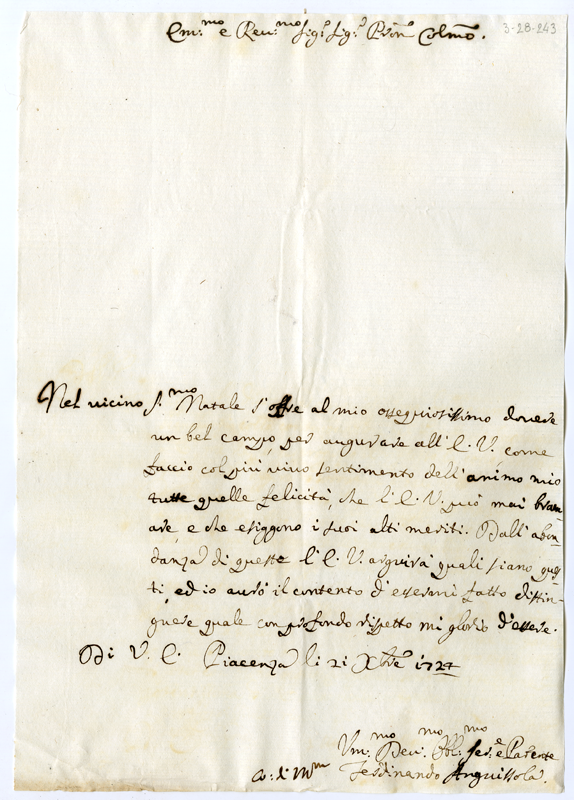 Em.mo e Rev.mo Sig.r Sig.r Pron Colmo.
3-28-243
Nel vicino S.mo Natale s'offre al mio ossequiosissimo dovere
un bel campo, per augurare all'E. V. come
faccio col più vivo sentimento dell'animo mio
tutte quelle felicità, che l'E. V. può mai bram-
are, e che esiggono i suoi alti meriti. Dall'abon-
danza di queste l'E. V. arguirà quali siano ques-
ti, ed io avrò il contento d'essermi fatto distin-
guere quale con profondo rispetto mi glorio d'essere.
Di V. E. Piacenza li 21 Xbre 1727
Vm.mo Dev.mo Obl.mo Ser.e e Parente
Ferdinando Anguissola